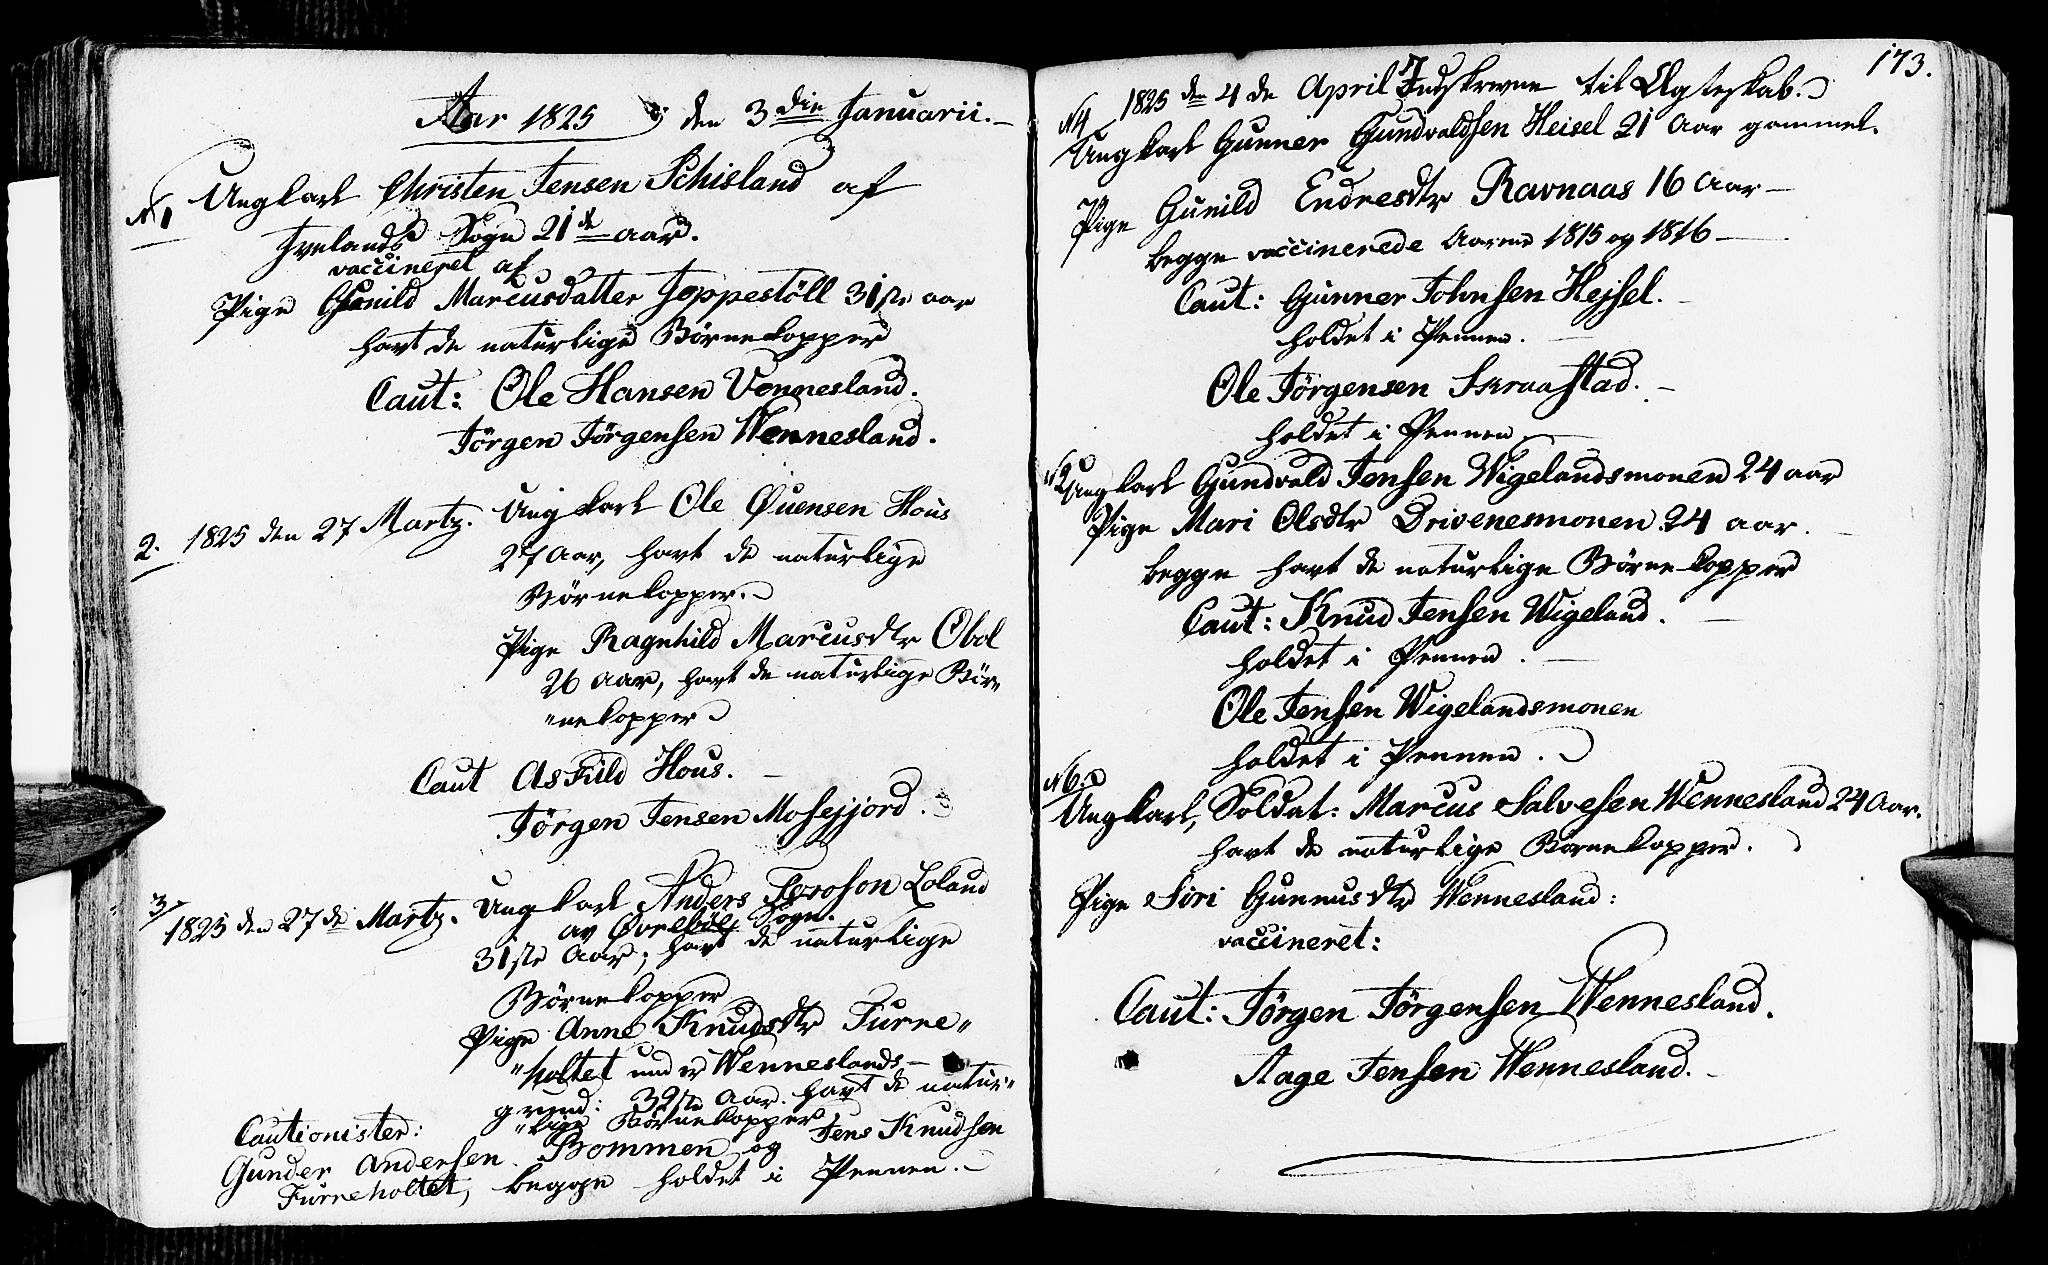 Aar 1825 den 3die Januarii.
N 1 Ungkarl Christen Jensen Schisland af
Ivelands Sogn 21de aar.
vaccineret af
Pige Gunild Marcusdatter Joppestöll 31ste aar
havt de naturlige Börnekopper
Caut: Ole Hansen Vennesland.
Jörgen Jörgensen Wennesland.
2. 1825 den 27 Martz. Ungkarl Ole Øuensen Hous
27 Aar, havt de naturlige
Börnekopper.
Pige Ragnhild Marcusdtr Obol
26 Aar, havt de naturlige Bör„
„nekopper
Caut Asfuld Hous.
Jörgen Jensen Mosejjord.
3/ 1825 den 27de Martz. Ungkarl Anders Loland
av Øvreböe Sogn.
31ste Aar; havt de naturlige
Börnekopper
Pige Anne Knudsdtr Furre„
„holtet under Wenneslands-
grund: 39te Aar. havt de natur„
„lige Börnekopper
Cautionister: Jens Knudsen
Gunder Andersen Bommen og
Furreholtet, begge holdet i Pennen.
173.
N 4 1825 den 4de April Indskrevne til Ægteskab.
Ungkarl Gunner Gundvaldsen Heisel 21 Aar gammel.
Pige Gunild Endresdtr Ravnaas 16 Aar
begge vaccinerede Aarene 1815 og 1816
Caut: Gunner Johnsen Hejsel.
holdet i Pennen.
Ole Jörgensen Skraastad.
holdet i Pennen
Ungkarl Gundvald Jensen Wigelandsmonen 24 aar
Pige Mari Olsdtr Drivenesmonen 24 aar.
begge havt de naturlige Börnekopper
Caut: Knud Jensen Wigeland.
holdet i Pennen.
Ole Jensen Wigelandsmonen
holdet i Pennen.
N 6.
Ungkarl, Soldat: Marcus Salvesen Wennesland 24 Aar.
havt de naturlige Börnekopper.
Pige Siri Gunnusdtr Wennesland:
vaccineret:
Caut: Jörgen Jörgensen Wennesland.
Aage Jensen Wennesland.